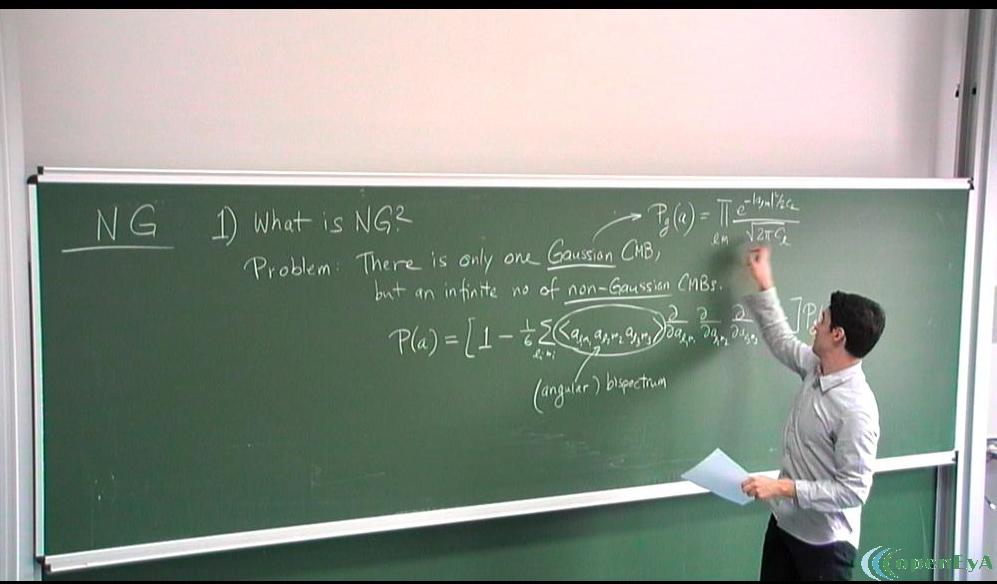 NG
1) What is NG?
P_g(a) = ∏_{lm} e^{-|a_{lm}|²/2C_l} / √(2πC_l)
Problem: There is only one Gaussian CMB,
but an infinite no of non-Gaussian CMBs.
P(a) = [1 - 1/6 ∑_{l_i m_i} <a_{l_1m_1} a_{l_2m_2} a_{l_3m_3}> ∂/∂a_{l_1m_1} ∂/∂a_{l_2m_2} ∂/∂a_{l_3m_3} ] P
(angular) bispectrum
openEyA